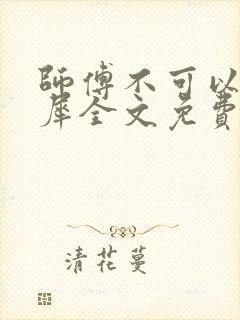 師傅不可以
犀全文免費
清花蔓